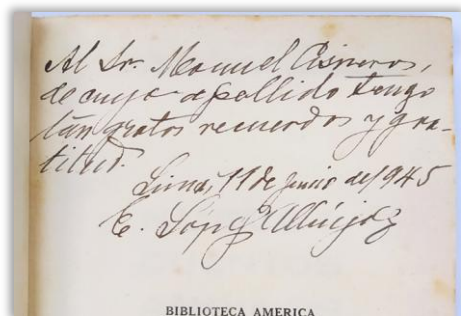 Al Sr. Manuel Cisneros,
de cuyo apellido tengo
tan gratos recuerdos y gra-
titud.
Lima, 11 de junio de 1945
E. López Albújar
BIBLIOTECA AMERICA